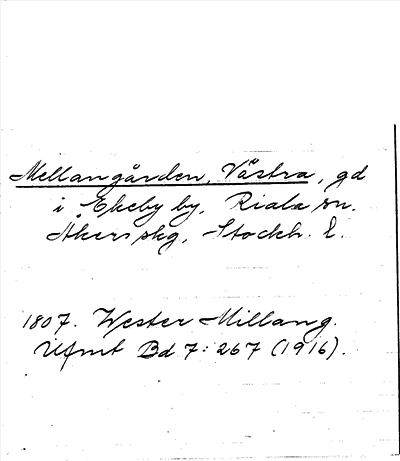 Mellangården, Västra, gd
i Ekeby by, Riala sn.
Åkers skg, Stockh. l.
1807. Wester Millang.
Ufmt Bd 7: 267 (1916).